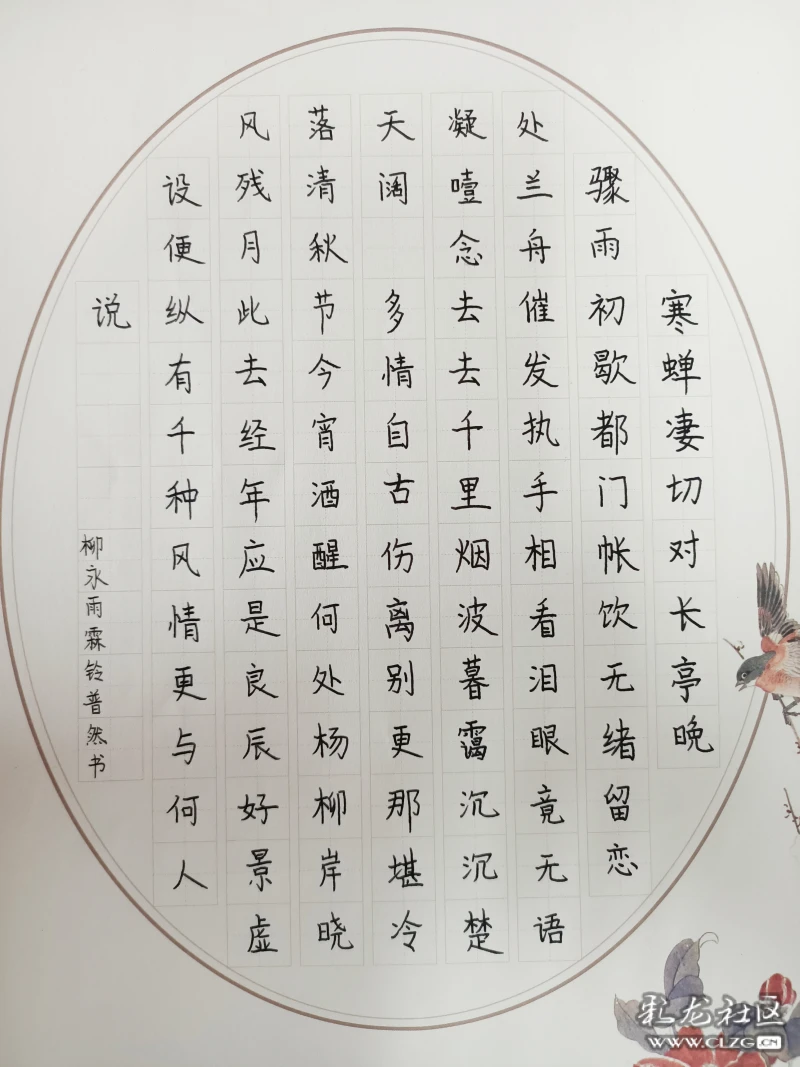 寒蝉凄切对长亭晚
骤雨初歇都门帐饮无绪留恋
处兰舟催发执手相看泪眼竟无语
凝噎念去去千里烟波暮霭沉沉楚
天阔 多情自古伤离别更那堪冷
落清秋节今宵酒醒何处杨柳岸晓
风残月此去经年应是良辰好景虚
设便纵有千种风情更与何人
说
柳永雨霖铃普然书
彩龙社区
WWW.CLZG.CN